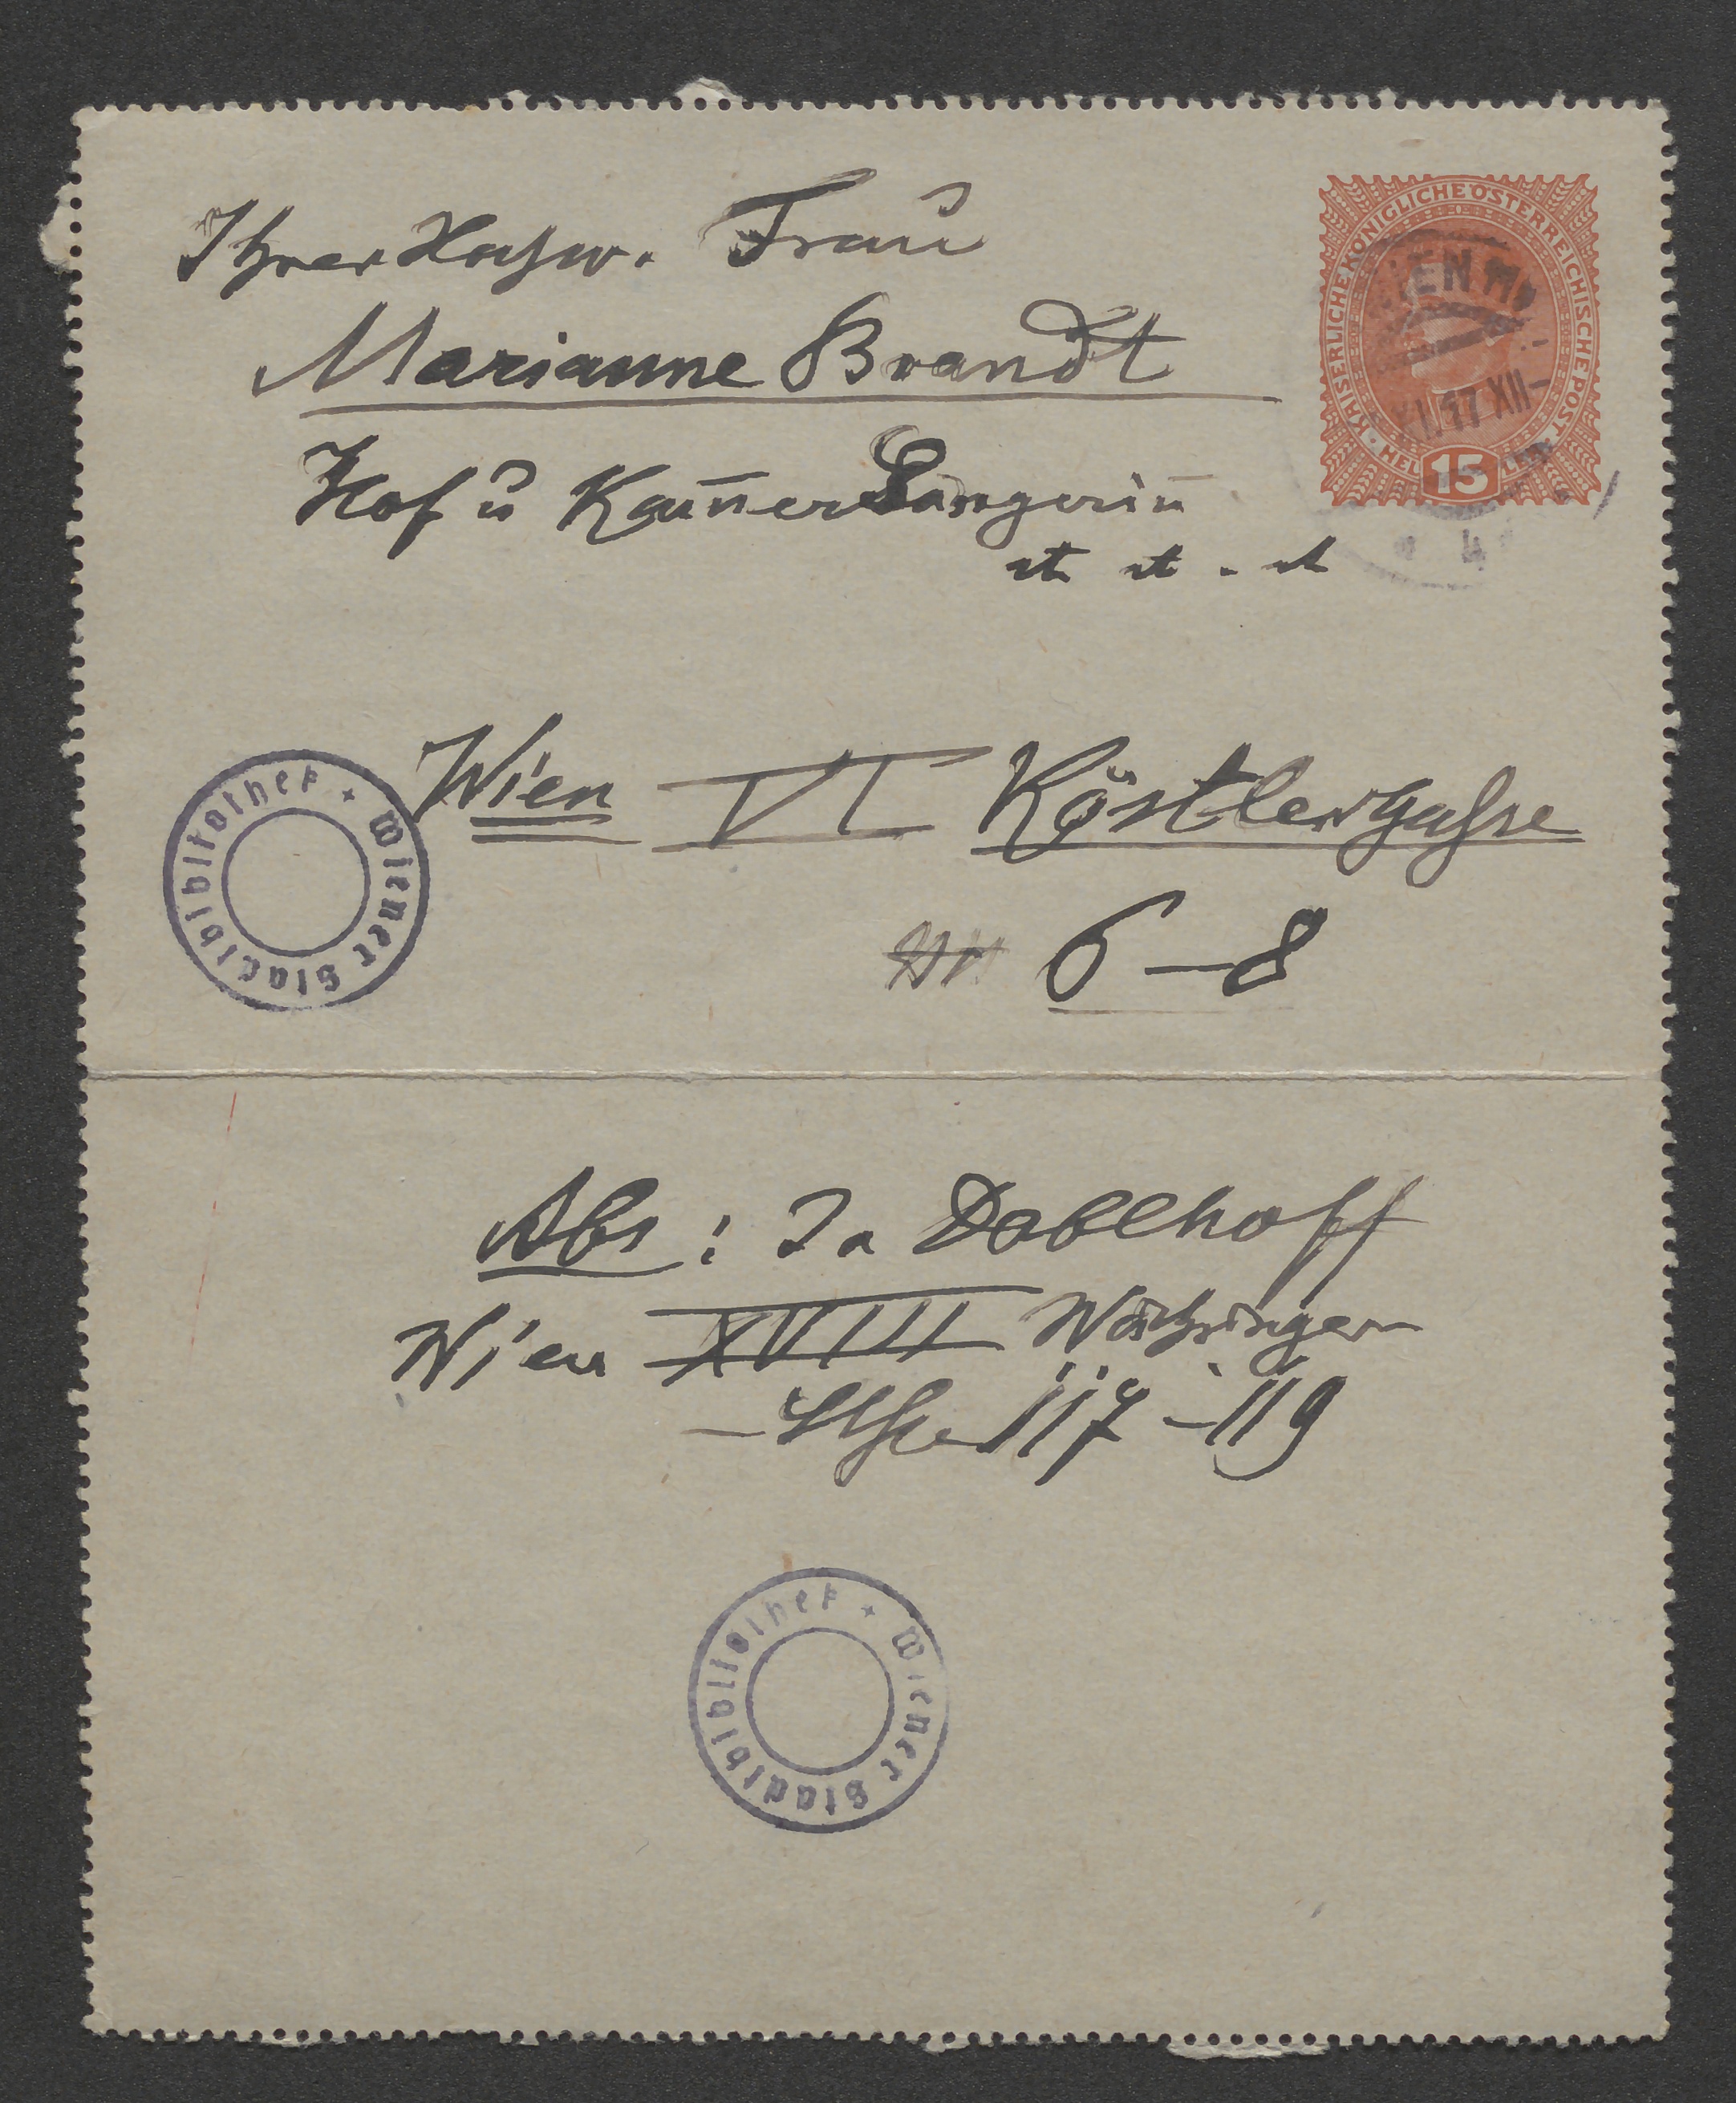 Ihrer Hochw. Frau
Marianne Brandt
Hof u Kam̄er Sängerin̄
et et. et
KAISERLICHE KÖNIGLICHE ÖSTERREICHISCHE POST
15
HELLER
WIEN
17 XII
4
Wien VI Köstlergasse
6–8
Wiener Stadtbibliothek
Abs: Doblhoff
Wien XVIII Währinger
–Stsse 117–119
Wiener Stadtbibliothek